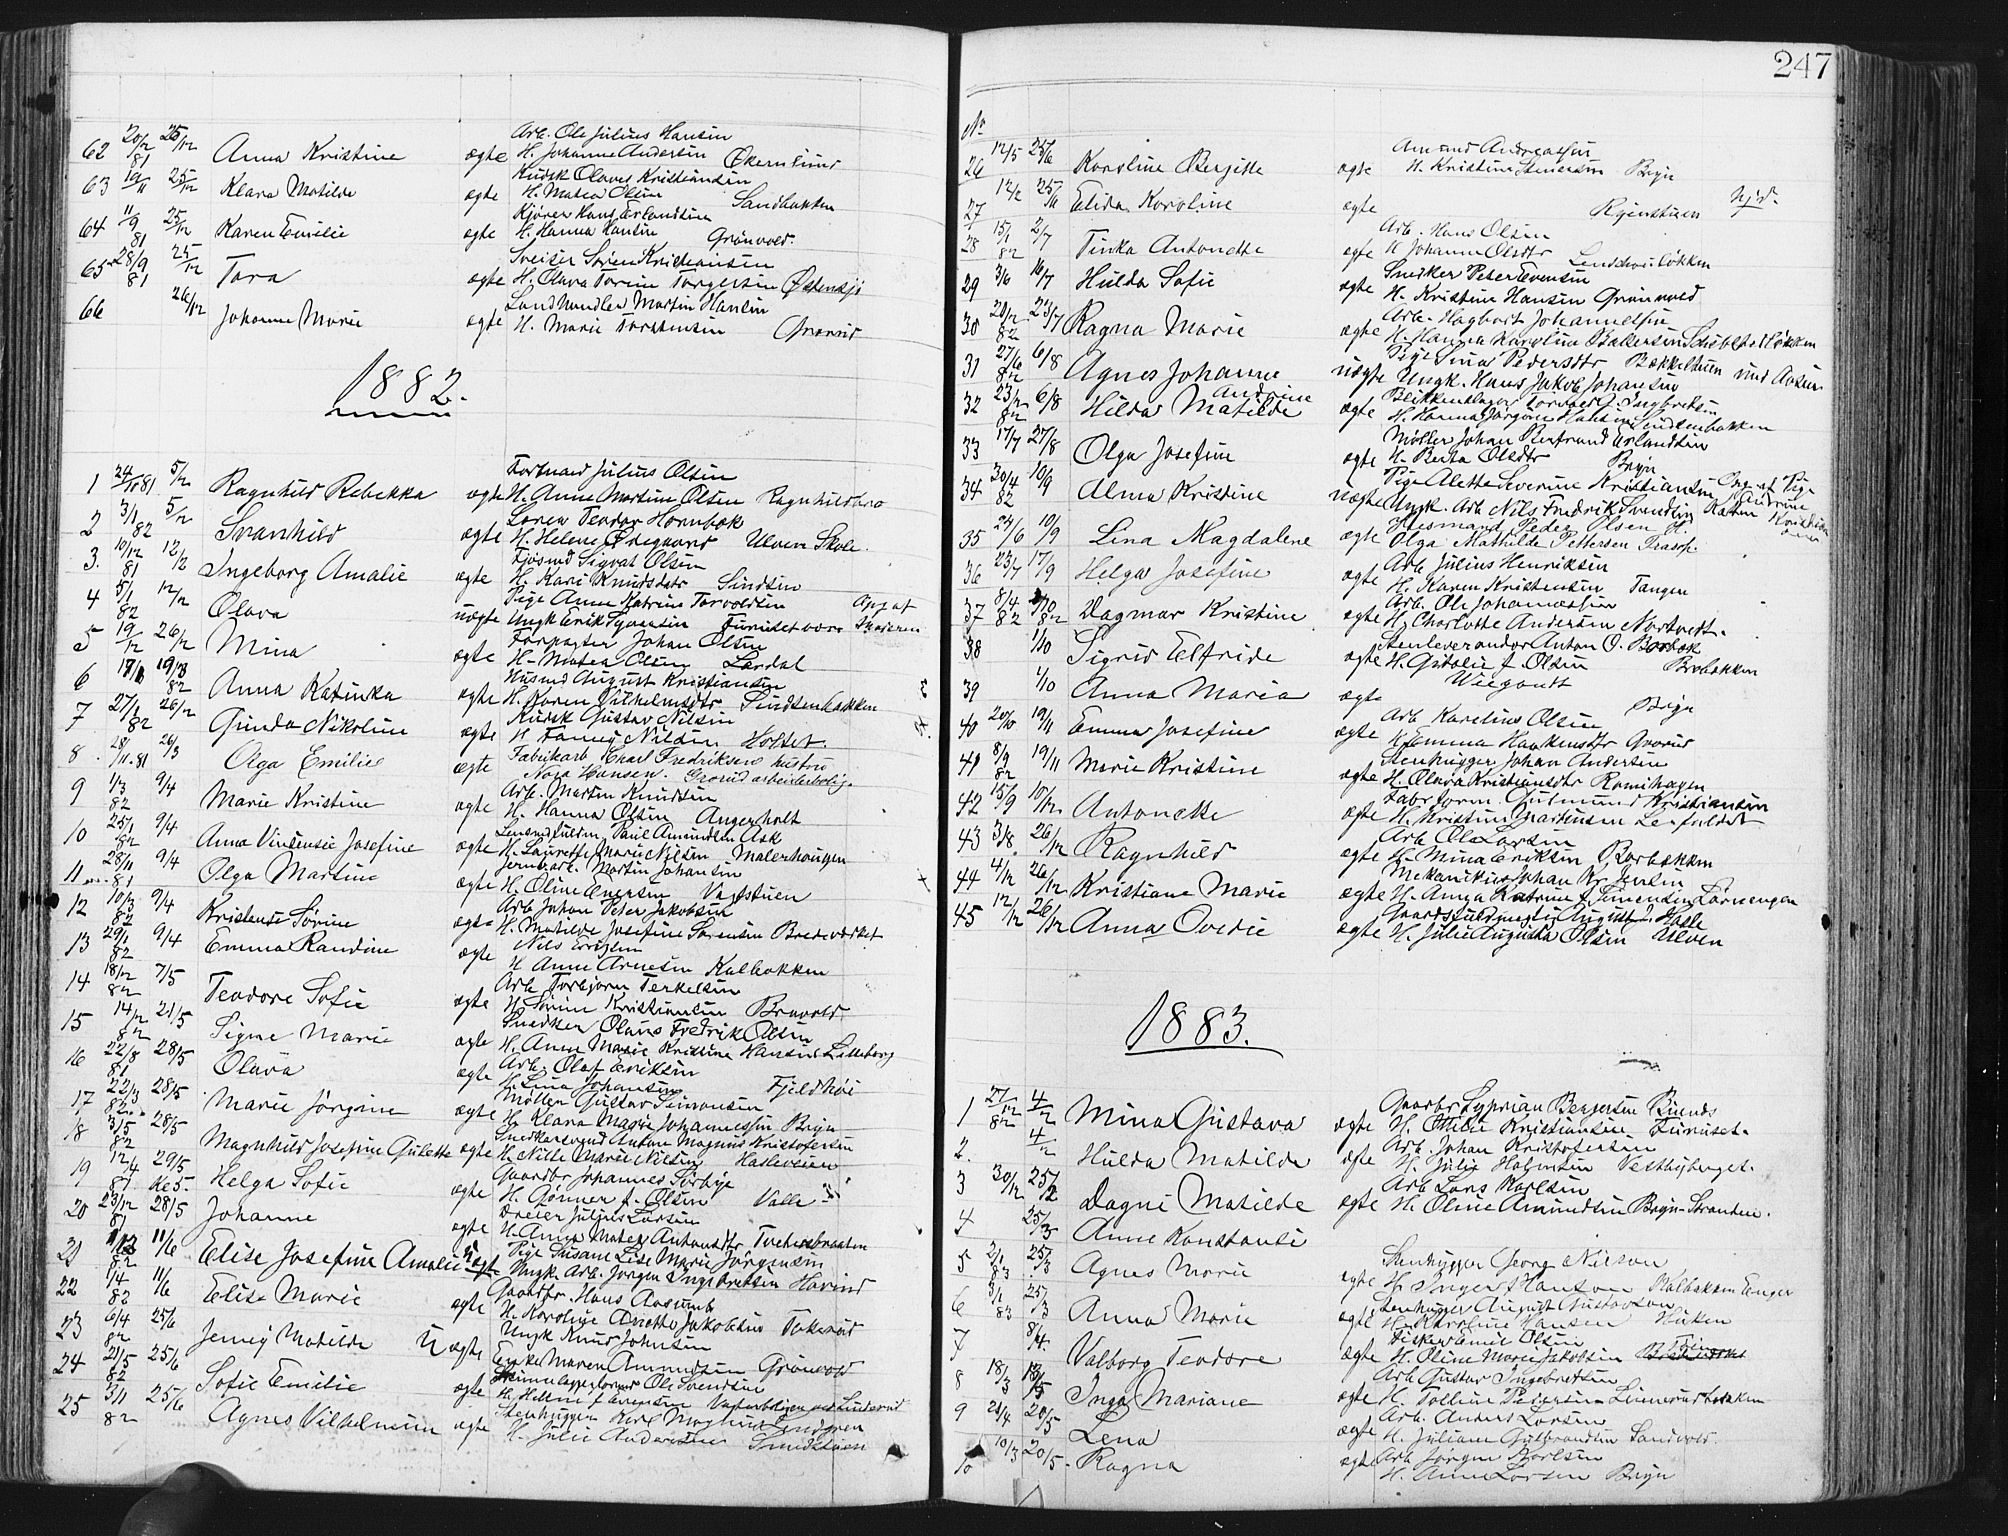 62 20/12 81 25/12 Anna Kristine ægte Arb. Ole Julius Hansen
H. Johanne Andersen Økernlund
63 19/11 25/12 Klara Matilde ægte Kudsk Olaves Kristiansen
H. Matea Olsen Sandbakken
64 11/9 81 25/12 Karen Emilie ægte Kjører Hans Erlandsen
H. Hanna Hansen Grønvold.
65 28/9 81 25/12 Tara ægte Sveiser Søren Kristiansen
H. Olava Torine Torgersen Østensjø
66 26/12 Johanne Marie ægte Landhandler Martin Hansen
H. Marie Torstensen Grorud
1882.
1 24/10 81 5/2 Ragnhild Rebekka ægte Formand Julius Olsen
H. Anne Martine Olsen Ragnhildsbro
2 3/1 82 5/2 Svanhild ægte Lærer Teodor Hornbæk
H. Helene Ødegaard Ulven Skole.
3. 10/12 81 12/2 Ingeborg Amalie ægte Fjøsmd Sigvat Olsen
H. Kari Knudsdtr Sinsen
4 5/1 82 12/2 Olava uægte Pige Anne Katrine Torvoldsen
Ungk Erik
5 19/12 26/2 Mina ægte Forpagter Johan Olsen
H. Matea Olsen Lørdal
6 82 Anna Katinka ægte Husmd August Kristiansen
H. Karen Vilhelmsdtr. Sindsenbakken
7 27/1 82 26/2 Gunda Nikoline ægte Kudsk Gustav Nilsen
H. Fanny Nilsen Holtet.
8. 28/11.81 26/3 Olga Emilie ægte Fabrikarb Charl Fredriksen hustru
Nora Hansen. Grorud arbeiderbolig.
9 1/3 82 9/4 Marie Kristine ægte Arb. Martin Knudsen
H. Hanna Olsen Angerholt
10 25/1 82 9/4 Anna Vinsensie Josefine ægte Paul Amundsen Ask
H. Laurette Marie Nilsen Malerhaugen
11 28/11 81 9/4 Olga Martine ægte Jernbarb. Martin Johansen
H. Oline Evensen Vagtstuen
12 10/3 82 9/4 Kristense Sørine ægte Arb. Johan Peter Jakobsen
H. Matilde Josefine Sørensen Bredeværket
13 29/1 82 9/4 Emma Randine ægte Nils Eriksen
H. Anne Arnesen Kalbakken
14 18/12 82 7/5 Teodore Sofie ægte Arb. Torbjørn Terkelsen
H. Sørine Kristiansen Bruvold
15 14/12 82 21/5 Signe Marie ægte Snedker Olaus Fredrik Olsen
H. Anne Marie Kristine Hansen Lilleberg
16 22/8 81 28/5 Olava ægte Arb. Olaf Eriksen
H. Lina Johansen Fjeldhøi
17 22/3 82 28/5 Marie Jørgine ægte Møller Gustav Simonsen
H. Klara Marie Johannesen Bryn
18 3/5 82 28/5 Magnhild Josefine Gulette ægte Snedkersvend Anton Magnus Kristofersen
H. Nille Marie Nilsen Hasleveien
19 12/4 81 29/5 Helga Sofie ægte Gaardbr Johannes Sørbye
H. Gønner f. Olsen Valle
20 23/12 81 28/5 Johanne ægte Dreier Julius Larsen
H. Anne Matea Antonsdtr Tvetersbraaten
21 82 11/6 Elise Josefine Amalie uægt Pige Susane Lise Marie Jørgensen
Ungk. Arb. Jørgen Ingebretsen Haviind
22 1/4 82 11/6 Elise Marie ægte Gaardbr. Hans Aasumb
H. Karoline Anette Jakobsen Tokerud
23 6/4 82 25/6 Jenny Matilde Uægte Ungk Knud Johnsen
Enke Maren Amundsen Grønvold
24 21/5 82 25/6 Sofie Emilie ægte Ole Svendsen
H. Helene f. Evensen
25 3/11 82 25/6 Agnes Vilhelmine ægte Stenhygger Karl Maglund Lindgren
H. Julie Andersen Smedstuen
247
No
26 12/5 25/6 Karoline Bergitte ægte Amund Andreassen
H. Kristine Stenersen Bryn
27 12/2 25/6 Elida Karoline ægte Ryenstien Njd.
28 15/1 82 2/7 Tinka Antonette ægte Arb. Hans Olsen
H. Johanne Olsdtr Lenschouløkken
29 3/6 16/7 Hulda Sofie ægte Snedker Peter Evensen
H. Kristine Hansen Grønvold
30 20/12 82 23/7 Ragna Marie ægte Arb. Hagbart Johannesen
H. Hanna Karoline
31 27/6 82 6/8 Agnes Johanne uægte Pige Lina Pedersdtr Bækkelstuen
Ungk. Hans Jakob Johansen
32 23/12 82 6/8 Hilda Matilde Andrine ægte Blikkenslager Torvald J. Ingbretsen
H. Hanna Jørgine Hansen Sindsenbakken
33 17/7 27/8 Olga Josefine ægte Møller Johan Bertrand Erlandsen
H. Berta Olsdtr Bryn
34 30/4 82 10/9 Alma Kristine uægte Pige Alette Severine Kristiansen
Ungk. Arb. Nils Fredrik Svendsen
35 24/6 10/9 Lina Magdalene ægte Husmand Peder Olsen H.
Olga Mathilde Pettersen Trasop.
36 23/7 17/9 Helga Josefine ægte Arb Julius Henriksen
H. Karen Kristensen Tangen
37 8/4 82 1/10 82 Dagmar Kristine ægte Arb. Ole Johannessen
H. Charlotte Andersen Nortvedt.
38 1/10 Sigrid Elfride ægte Stenleverandør Anton O. Borbæk
H. Gidalie f. Olsen Brobakken
39 1/10 Anna Maria ægte Wiegandt
Bryn
40 20/10 19/11 Emma Josefine ægte Arb Karelius Olsen
H. Emma Haakensdtr Grorud
41 8/9 82 19/11 Marie Kristine ægte Stenhugger Johan Andersen
H. Olava Kristiansdtr Romihagen
42 15/9 10/12 Antonette ægte Fabr form. Gulmund Kristiansen
H. Kristine Martinsen Lerfaldet
43 3/8. 26/12 Ragnhild ægte Arb Ole Larsen
H. Mina Eriksen Borbækken
44 4/12 26/12 Kristiane Marie ægte Mekanikus Johan Kr. Jensen
H. Anna Katrine f. Simensen Lørenengen
45 12/12 26/12 Anna Ovedie ægte August Halle
H. Julie Augusta Olsen Ulven
1883.
1 27/12 82 4/2 Mina Gustava ægte Gaardbr Syprian Bergersen Riunds
H. Otilie Kristiansen Furuset.
2. 4/2 Hulda Matilde ægte Arb. Johan Kristofersen
H. Julie Halvorsen Vesthøiberget.
3 30/12 25/2 Dagni Matilde ægte Arb Lars Karlsen
H. Oline Amundsen Bryn-Stranden.
4 25/3 Anne Konstanse
5 2/1 83 25/3 Agnes Marie ægte Stenhugger Georg Nilsen
H. Inger f. Hansen Kalbakken Enger
6 3/1 83 25/3 Anna Marie ægte Stenhugger August Gustavson
H. Karoline Hansen Høken
7 8/4. Valborg Teodore ægte Fisker Emil Olsen
H. Oline Marie Jakobsen
8 18/3 13/5 Inga Mariane ægte Arb Gustav Ingebretsen
H. Torline Pedersen Linnerudbakken
9 21/4 20/5 Lena ægte Arb. Anders Larsen
H. Juliane Gulbrandsen Sandvold.
10 10/3 20/5. Ragna ægte Arb Jørgen Karlsen
H. Anne Larsen Bryn